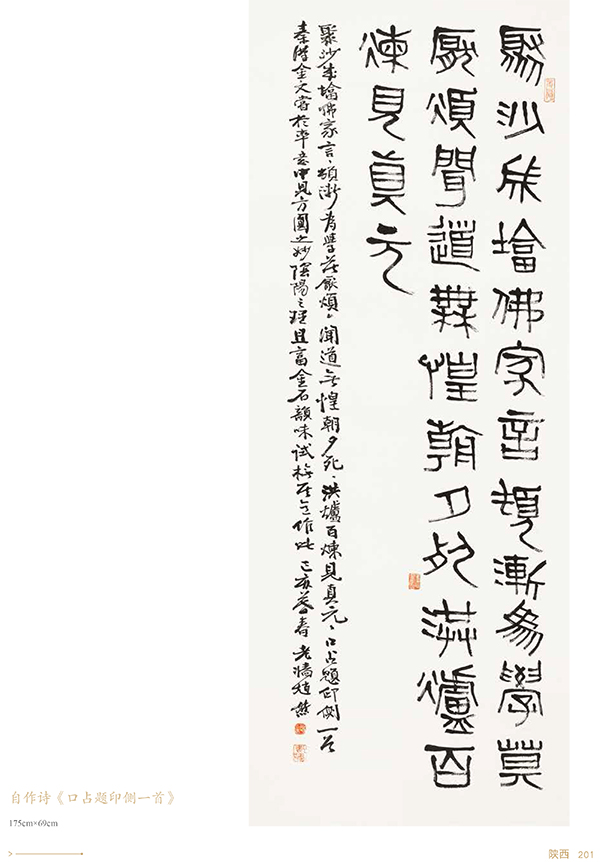 聚沙成墖佛家言頓漸為學莫
厭煩聞道無惶朝夕死洪爐百
煉見真元
聚沙成墖佛家言頓漸為學莫厭煩聞道無惶朝夕死洪爐百煉見真元口占題印側一首
金文書於率意中見方圓之妙陰陽之理且富金石韻味試作此己亥暮春
自作诗《口占题印侧一首》
175cm×69cm
陕西 201